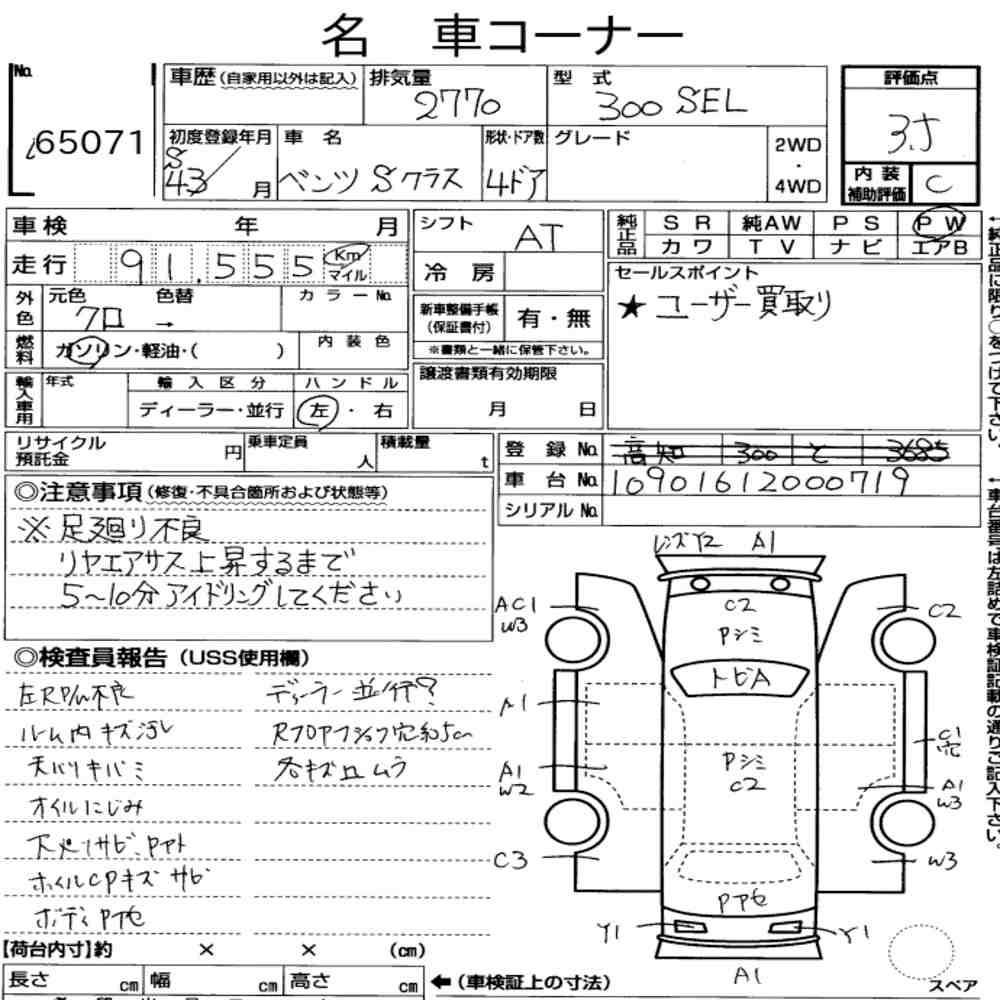 名 車コーナー
No.
65071
車歴(自家用以外は記入)
排気量
2770
型 式
300 SEL
評価点
3.5
初度登録年月
S
43 月
車 名
ベンツ Sクラス
形状・ドア数
4ドア
グレード
2WD
・
4WD
内 装
補助評価
C
車検 年 月
走行 91,555 Km
マイル
シフト
AT
冷 房
純正品
SR 純AW PS PW
カワ TV ナビ エアB
セールスポイント
★ ユーザー買取り
外色
元色 色替 カラーNo.
クロ →
燃料
ガソリン・軽油・( )
内装色
新車整備手帳
(保証書付)
有・無
※書類と一緒に保管下さい。
輸入車用
年式
輸入区分
ハンドル
ディーラー・並行
左・右
譲渡書類有効期限
月 日
リサイクル
預託金
円
乗車定員
人
積載量
t
登 録 No.
高知 300 と 3685
車 台 No.
10901612000719
シリアルNo.
◎注意事項(修復・不具合箇所および状態等)
※ 足廻り不良
リヤエアサス上昇するまで
5〜10分アイドリングしてください
◎検査員報告(USS使用欄)
ディーラー並行?
ルーム内キズ汚レ
天バリキバミ
オイルにじみ
レンズY2 A1
C2
Pシミ
トビA
AC1
W3
C2
A1
A1
W2
C1
Pシミ
C2
A1
W3
C3
W3
Y1
Y1
A1
スペア
【荷台内寸】約 × × (cm)
長さ cm 幅 cm 高さ cm
←(車検証上の寸法)
←純正品に限り○をつけて下さい。
←車台番号は左詰めで車検証記載の通りご記入下さい。